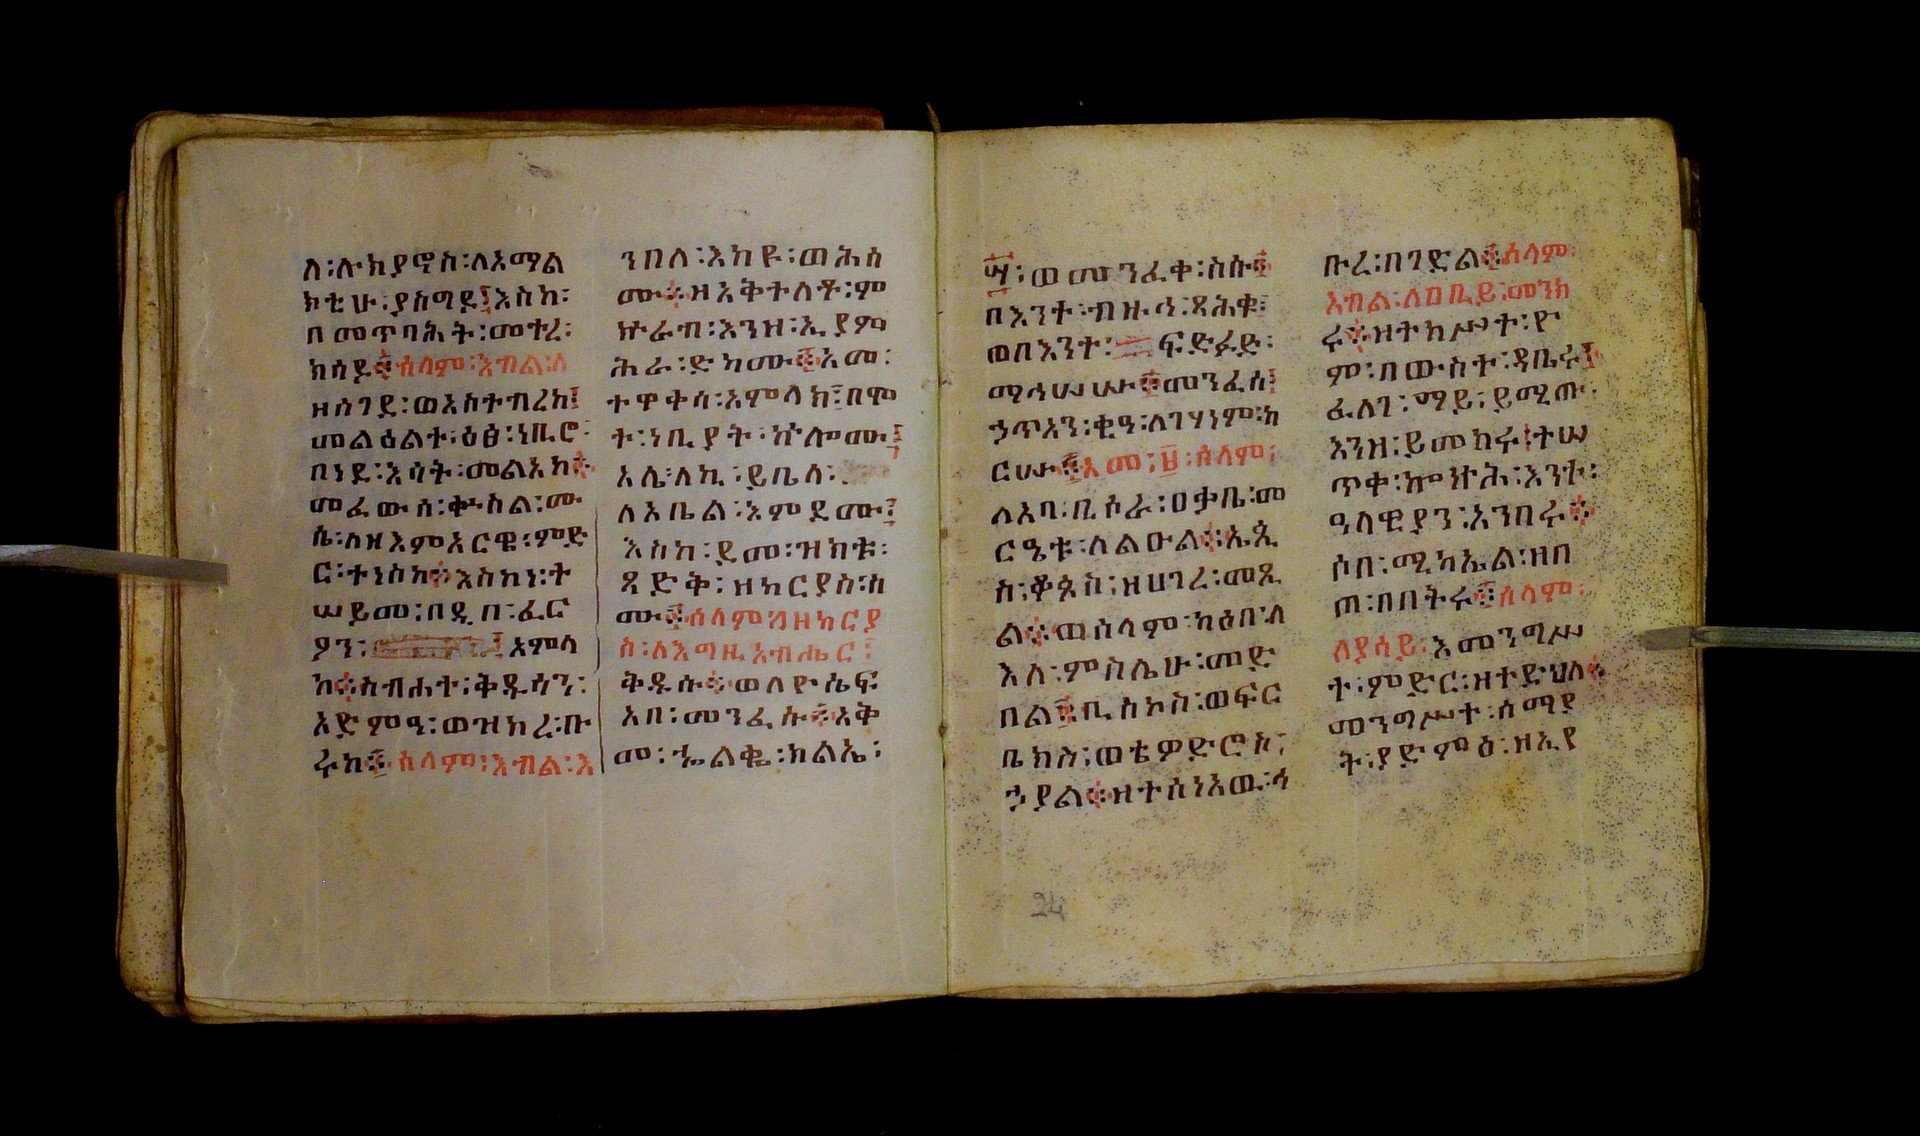 ለ፡ሉክያኖስ፡ለአማል
ክቲሁ፡ያስግዶ፤እስከ፡
በመጥባሕት፡መተረ፡
ክሳዶ፨ሰላም፡እብል፡ለ
ዘሰገደ፡ወአስተብረከ፤
መልዕልተ፡ዕፅ፡ነቢሮ፡
በነደ፡እሳት፡መልአከ፨
መፈውሰ፡ቍስል፡ሙ
ሴ፡ለዘእምአርዌ፡ምድ
ር፡ተነስከ፨እስከነ፡ት
ሠይመ፡በዲበ፡ፈር
ዖን፡ ፤አምላ
ከ፨ስብሐተ፡ቅዱሳን፡
አድምዓ፡ወዝክረ፡ቡ
ሩከ፨ሰላም፡እብል፡እ
ንበለ፡እከዩ፡ወሕሰ
ሙ፨ዘአቅተለቶ፡ም
ኵራብ፡እንዘ፡ኢያም
ሕራ፡ድካሙ፨አመ፡
ተዋቀሳ፡አምላክ፤በሞ
ተ፡ነቢያት፡ኵሎሙ፤
አሌ፡ለኪ፡ይቤላ፡
ለአቤል፡እምደሙ፤
እስከ፡ደመ፡ዝክቱ፡
ጻድቅ፡ዘካርያስ፡ስ
ሙ፨ሰላም፡ለዘካርያ
ስ፡ለእግዚአብሔር፡
ቅዱሱ፨ወለዮሴፍ
አበ፡መንፈሱ፨አቅ
መ፡ኄልቈ፡ክልኤ፡
፻፡ወመንፈቀ፡ስሱ፨
በእንተ፡ብዙኅ፡ጻሕቁ፡
ወበእንተ፡ ፍድፉድ፡
ማኅሠሡ፨መንፈሰ፤
ኃጥአን፡ቂዓ፡ለገሃነም፡ከ
ርሡ፨አመ፡፱፡ሰላም፡
ለአባ፡ቢሶራ፡ዐቃቤ፡መ
ርዔቱ፡ለልዑል፨ኤጲ
ስ፡ቆጶስ፡ዘሀገረ፡መጺ
ል፨ወሰላም፡ካዕበ፡ለ
እለ፡ምስሌሁ፡መድ
በል፨ቢስኮስ፡ወፍር
ቤክስ፡ወቴዎድሮስ፡
ኃያል፨ዘተሰነአዉ፡ኅ
ቡረ፡በገድል፨ሰላም፡
እብል፡ለዐቢይ፡መንክ
ሩ፨ዘተከሥተ፡ዮ
ም፡በውስተ፡ዳቤሩ፤
ፈለገ፡ማይ፡ይሚጡ፡
እንዘ፡ይመከሩ፤ተሠ
ጥቀ፡ኰኵሕ፡እንተ፡
ዓለዊያን፡አንበሩ፨
ሶበ፡ሚካኤል፡ዘበ
ጠ፡በበትሩ፨ሰላም፡
ለያሳይ፡እመንግሥ
ት፡ምድር፡ዘተድህለ፨
መንግሥተ፡ሰማያ
ት፡ያድምዕ፡ዘኢየ
24